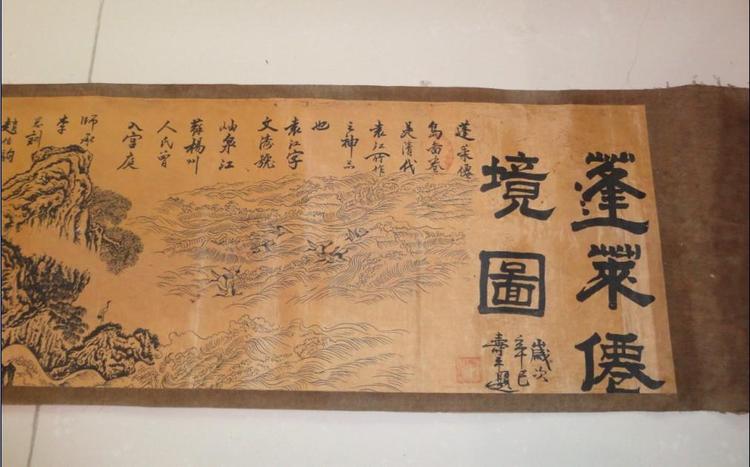 蓬莱僊
境圖
歲次
辛巳
壽平題
蓬莱僊
島畵卷
是清代
袁江所作
之神品
也
袁江字
文濤號
岫泉江
蘇楊州
人民曾
入宫庭
師承
李
思訓
趙伯駒